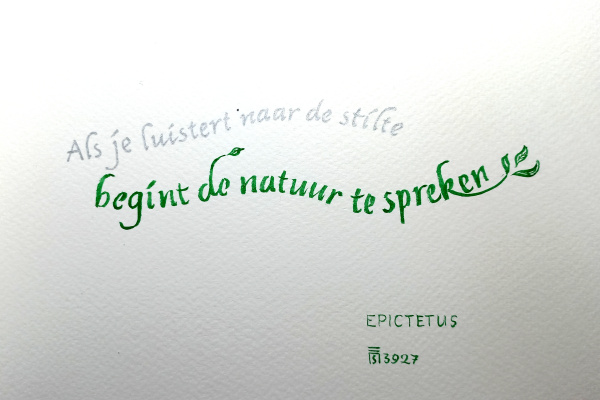 Als je luistert naar de stilte
begint de natuur te spreken
EPICTETUS
3927